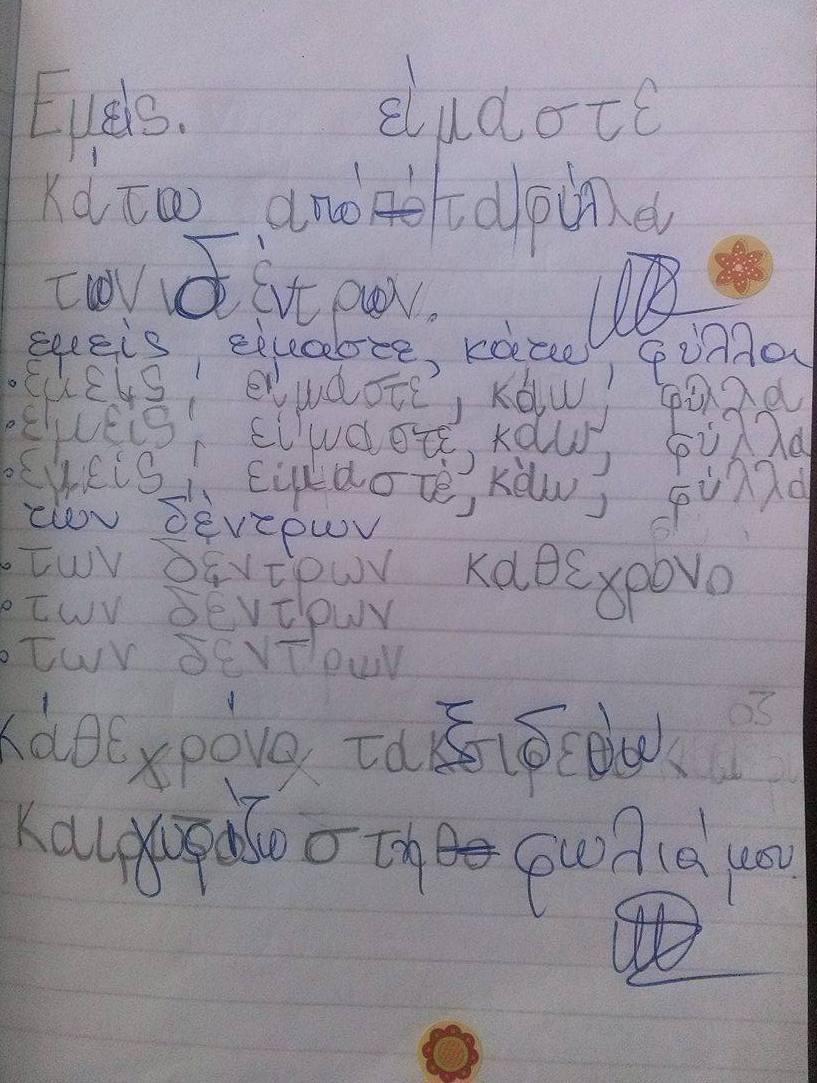 Εμείς. είμαστε
κάτω από τα φύλλα
των δέντρων.
εμείς, είμαστε, κάτω, φύλλα
εμείς, είμαστε, κάω, φύλλα
εμείς, είμαστε, κάω, φύλλα
εμείς, είμαστε, κάω, φύλλα
των δέντρων
των δεντρων καθεχρονο
των δέντρων
των δεντρων
κάθεχρόνο ταξιδεύω
και γυρίζω στη φωλιά μου.